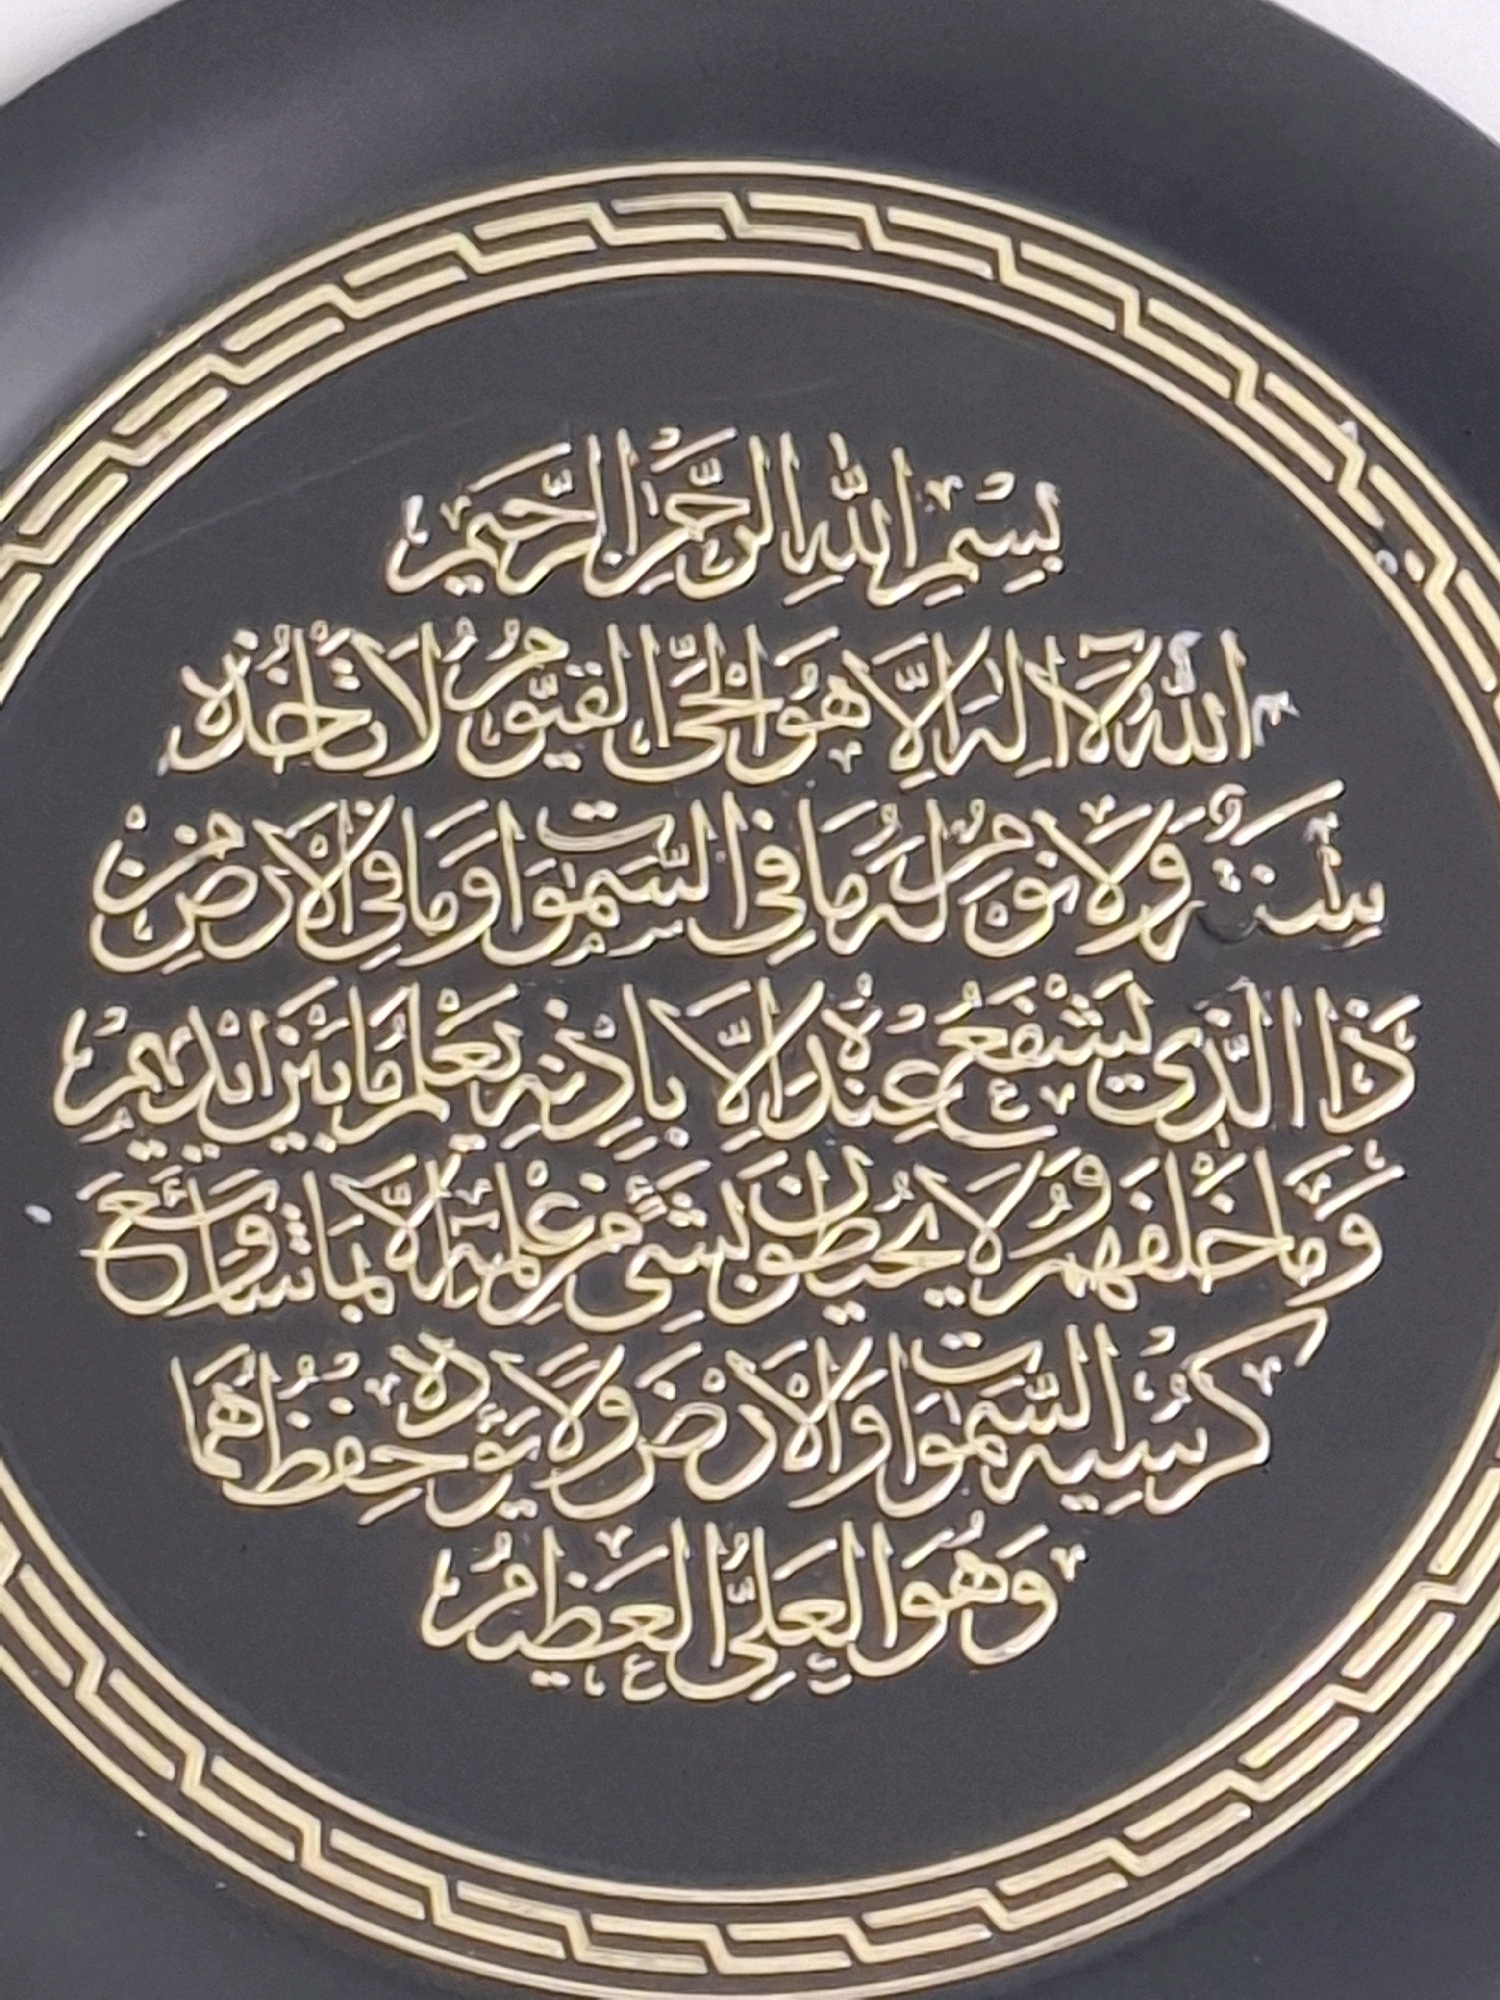 بِسْمِ اللهِ الرَّحْمٰنِ الرَّحِيْمِ
اَللهُ لَآ اِلٰهَ اِلَّا هُوَ الْحَيُّ الْقَيُّوْمُ لَا تَأْخُذُهٗ
سِنَةٌ وَّلَا نَوْمٌ لَهٗ مَا فِي السَّمٰوَاتِ وَمَا فِي الْاَرْضِ مَنْ
ذَا الَّذِيْ يَشْفَعُ عِنْدَهٗ اِلَّا بِاِذْنِهٖ يَعْلَمُ مَا بَيْنَ اَيْدِيْهِمْ
وَمَا خَلْفَهُمْ وَلَا يُحِيْطُوْنَ بِشَيْءٍ مِّنْ عِلْمِهٖ اِلَّا بِمَا شَآءَ وَسِعَ
كُرْسِيُّهُ السَّمٰوَاتِ وَالْاَرْضَ وَلَا يَؤُدُهٗ حِفْظُهُمَا
وَهُوَ الْعَلِيُّ الْعَظِيْمُ